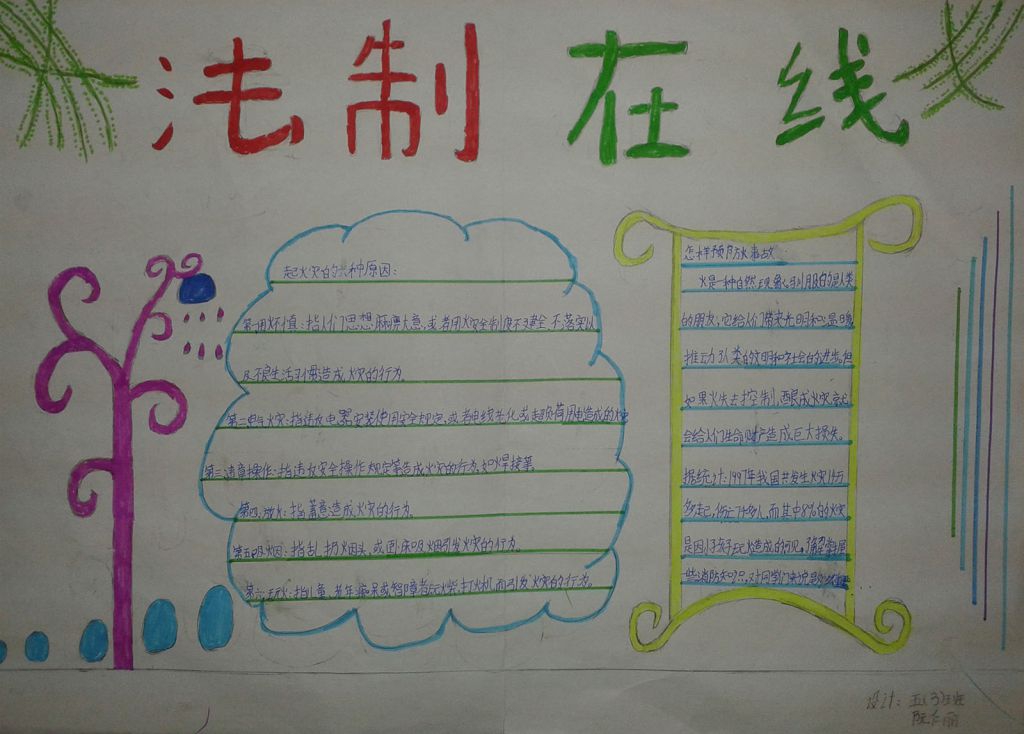 法制在线
起火灾的六种原因：
第一用火不慎：指人们思想麻痹大意，或者用火安全制度不健全、不落实以
及不良生活习惯造成火灾的行为。
第二电气火灾：指违反电器安装使用安全规定，或者电线老化或超负荷用电造成的火灾
第三违章操作：指违反安全操作规定等造成火灾的行为，如焊接等。
第四，放火：指蓄意造成火灾的行为。
第五吸烟：指乱扔烟头，或卧床吸烟引发火灾的行为。
第六玩火：指儿童、老年痴呆或智障者玩火柴、打火机而引发火灾的行为。
怎样预防火事故
火是一种自然现象，驯服的是人类
的朋友，它给人们带来光明和温暖
推动了人类的文明和社会的进步。但
如果火失去控制，酿成火灾，就
会给人们生命财产造成巨大损失。
据统计：1997年我国共发生火灾14万
多起，伤亡7千多人，而其中8%的火灾
是因小孩子玩火造成的可见，了解掌握
些消防知识，对同学们来说
设计：五(3)班